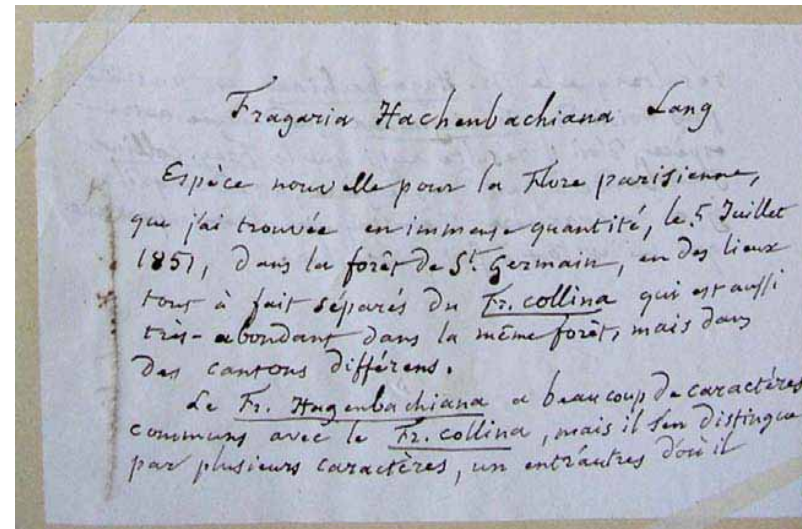 Fragaria Hachenbachiana Lang
Espèce nouvelle pour la Flore parisienne,
que j'ai trouvée en immense quantité, le 5 Juillet
1851, dans la forêt de St. Germain, en des lieux
tout à fait séparés du Fr. collina qui est aussi
très-abondant dans la même forêt, mais dans
des cantons différens.
Le Fr. Hagenbachiana a beaucoup de caractères
communs avec le Fr. collina, mais il s'en distingue
par plusieurs caractères, un entr'autres d'où il